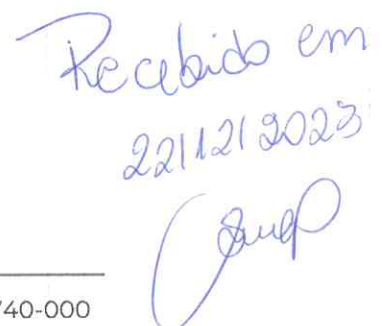 Recebido em
22/12/2023
740-000